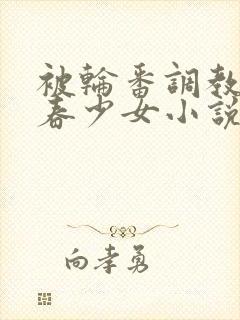 被輪番調教
春少女小說
向孝勇